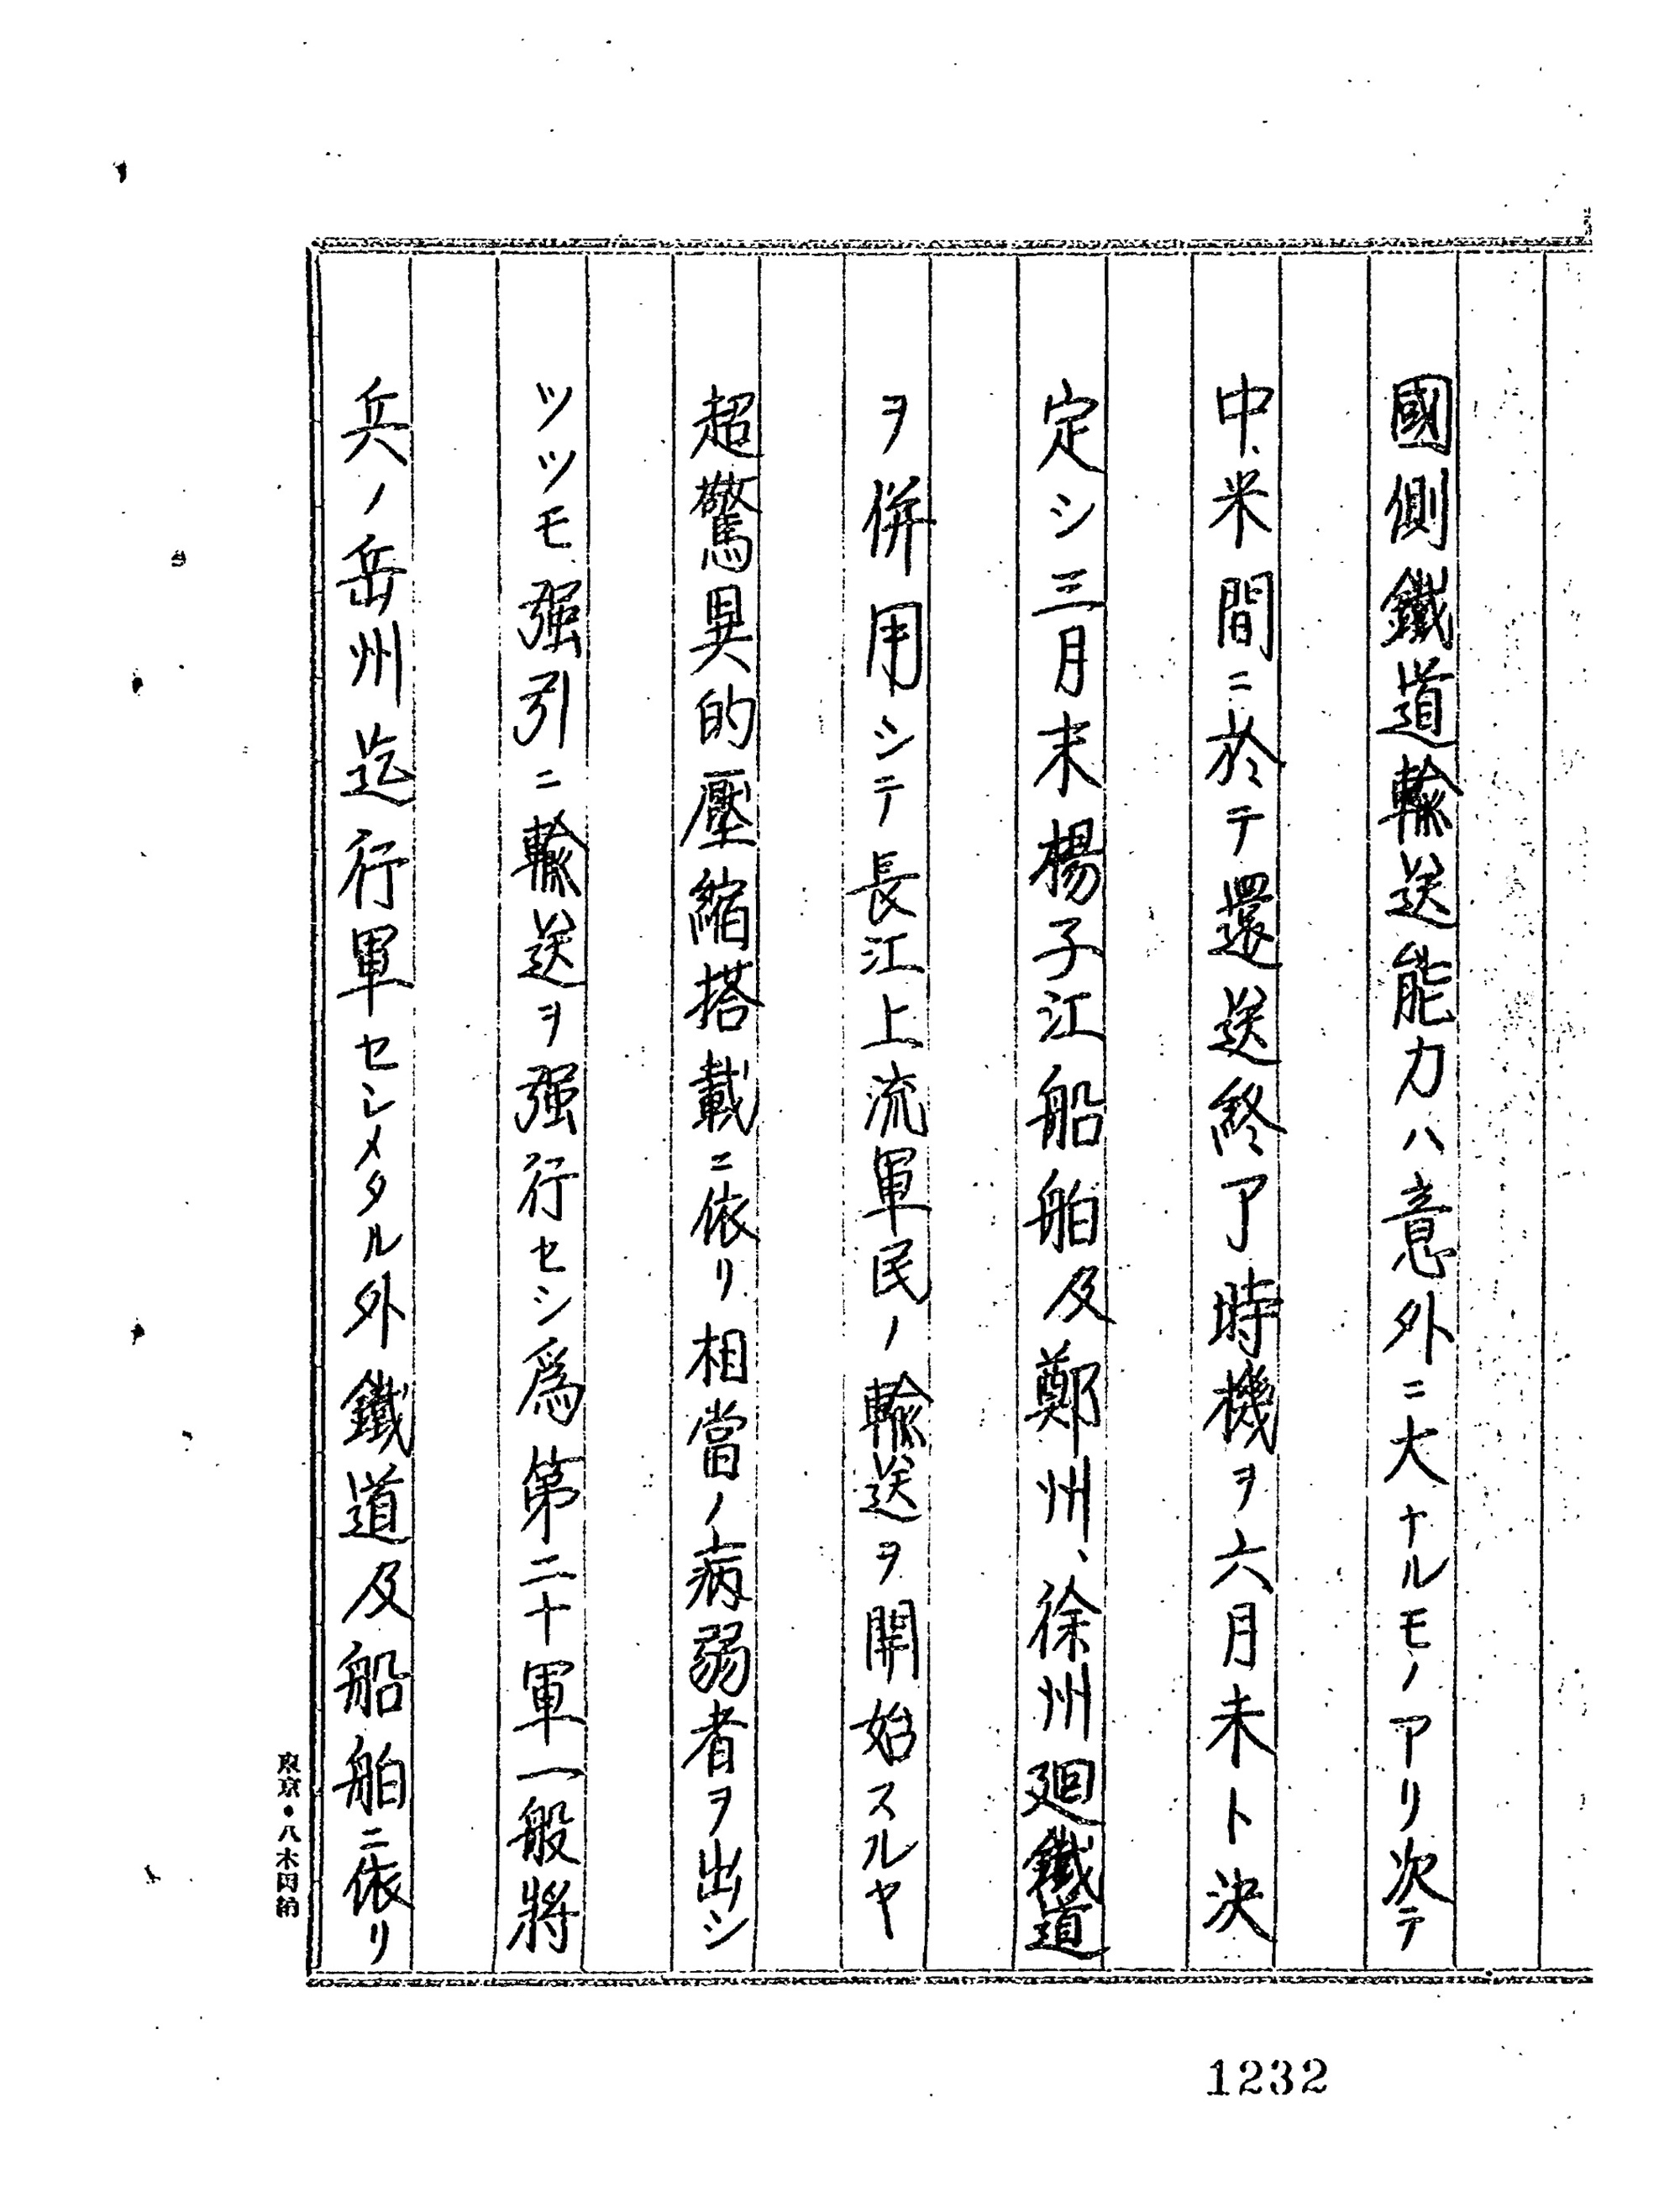 國側鐵道輸送能力ハ意外ニ大ナルモノアリ次テ
中、米間ニ於テ還送終了時機ヲ六月末ト決
定シ三月末楊子江船舶及鄭州、徐州廻鐵道
ヲ併用シテ長江上流軍民ノ輸送ヲ開始スルヤ
超驚異的壓縮搭載ニ依リ相當ノ病弱者ヲ出シ
ツツモ強引ニ輸送ヲ強行セシ爲第二十軍一般將
兵ノ岳州迄行軍セシメタル外鐵道及船舶ニ依リ
東京・八木田納
1232